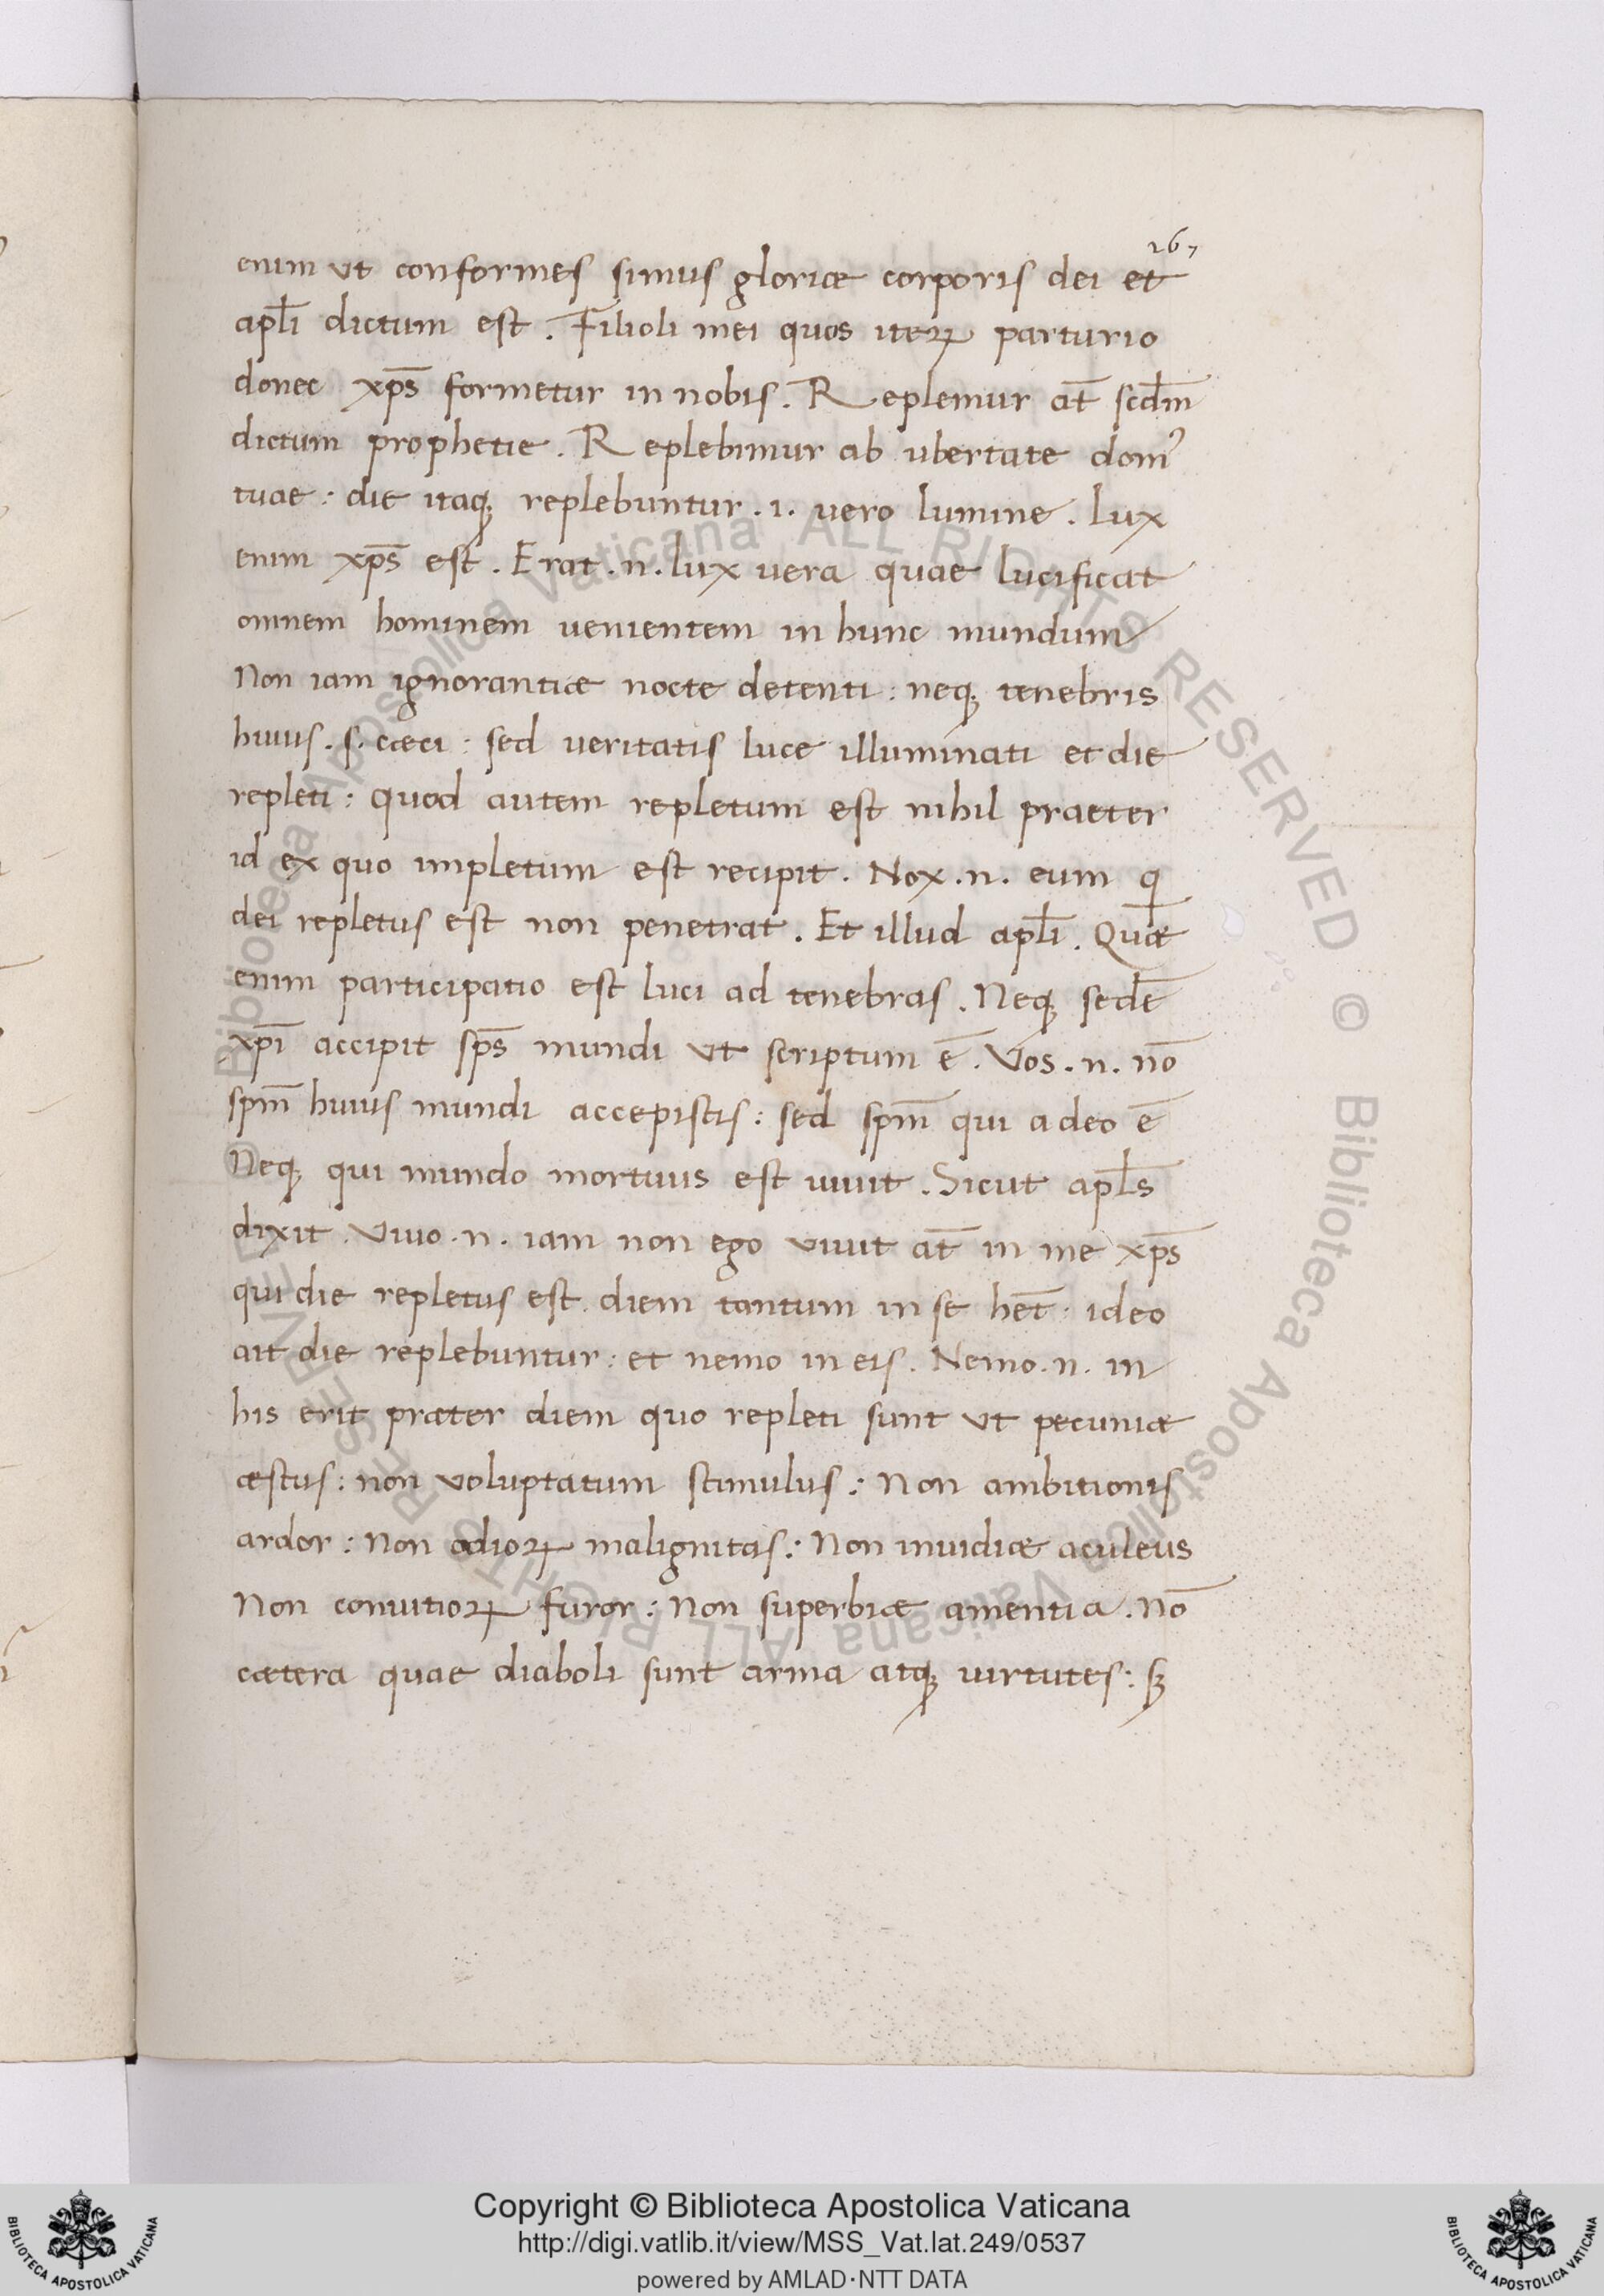 267
enim ut conformes simus gloriæ corporis dei et
apłi dictum est. Filioli mei quos iteꝝ parturio
donec xp̄s formetur in nobis. Replemur at̄ scd̄m
dictum prophetie. Replebimur ab ubertate dom᾿
tuae: die itaq; replebuntur .i. vero lumine. Lux
enim xp̄s est. Erat .n. lux vera quae lucificat
omnem hominem venientem in hunc mundum
Non iam ignorantiæ nocte detenti: neq; tenebris
huius .s. cæci: sed veritatis luce illuminati et die
repleti: quod autem repletum est nihil praeter
id ex quo impletum est recipit. Nox .n. eum q
dei repletus est non penetrat. Et illud apłi. Quæ
enim participatio est luci ad tenebras. Neq; sedē
xp̄i accipit sp̄s mundi ut scriptum ē. Vos .n. nō
sp̄m huius mundi accepistis: sed sp̄m qui a deo ē
Neq; qui mundo mortuus est uiuit. Sicut apłs
dixit. Viuo .n. iam non ego viuit at̄ in me xp̄s
qui die repletus est. diem tantum in se hēt: ideo
ait die replebuntur: et nemo in eis. Nemo .n. in
his erit præter diem quo repleti sunt ut pecuniæ
æstus: non voluptatum stimulus: Non ambitionis
ardor: Non odioꝝ malignitas: Non inuidiæ aculeus
Non conuitioꝝ furor: Non superbiæ amentia. Nō
cætera quae diaboli sunt arma atq; uirtutes: s;
Biblioteca Apostolica Vaticana ALL RIGHTS RESERVED © Biblioteca Apostolica Vaticana ALL RIGHTS RESERVED ©
Copyright © Biblioteca Apostolica Vaticana
http://digi.vatlib.it/view/MSS_Vat.lat.249/0537
powered by AMLAD·NTT DATA
BIBLIOTECA APOSTOLICA VATICANA
BIBLIOTECA APOSTOLICA VATICANA